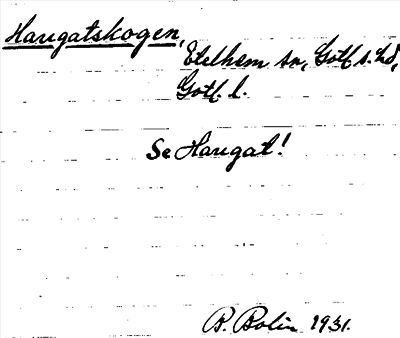 Haugatskogen,
Etelhem sn, Gotl. s. hd,
Gotl. l.
Se Haugat!
B. Bolin 1931.